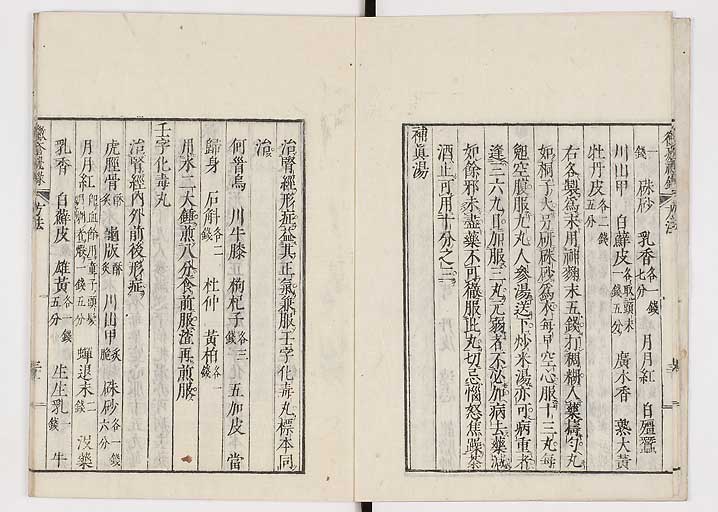 硃砂 乳香各一錢七分 月月紅 白殭蠶
川山甲 白蘚皮各一錢五分 廣木香 熟大黃
牡丹皮各二錢五分
右各製為末用神麴末五錢打稠糊入藥擣勻丸
如桐子大另研硃砂為衣每早空心服十三丸每
空腹服九丸人參湯送下炒米湯亦可病重者
逢三六九日加服三丸元弱者不必加病去藥減
如餘邪未盡藥不可撤服此丸切忌惱怒焦躁茶
酒止可用十分之三
補眞湯
治腎經形症益其正氣兼服壬字化毒丸標本同
治
何首烏 川牛膝 枸杞子各三錢 五加皮 當
歸身 石斛各二錢 杜仲 黃柏各一錢
用水二大鍾煎八分食前服渣再煎服
壬字化毒丸
治腎經內外前後形症
虎脛骨酥炙 龜版酥炙 川山甲炙脆 硃砂各一錢六分
月月紅 蟬退末二錢 沒藥
乳香 白蘚皮 雄黃各一錢五分 生生乳一錢 牛
方法